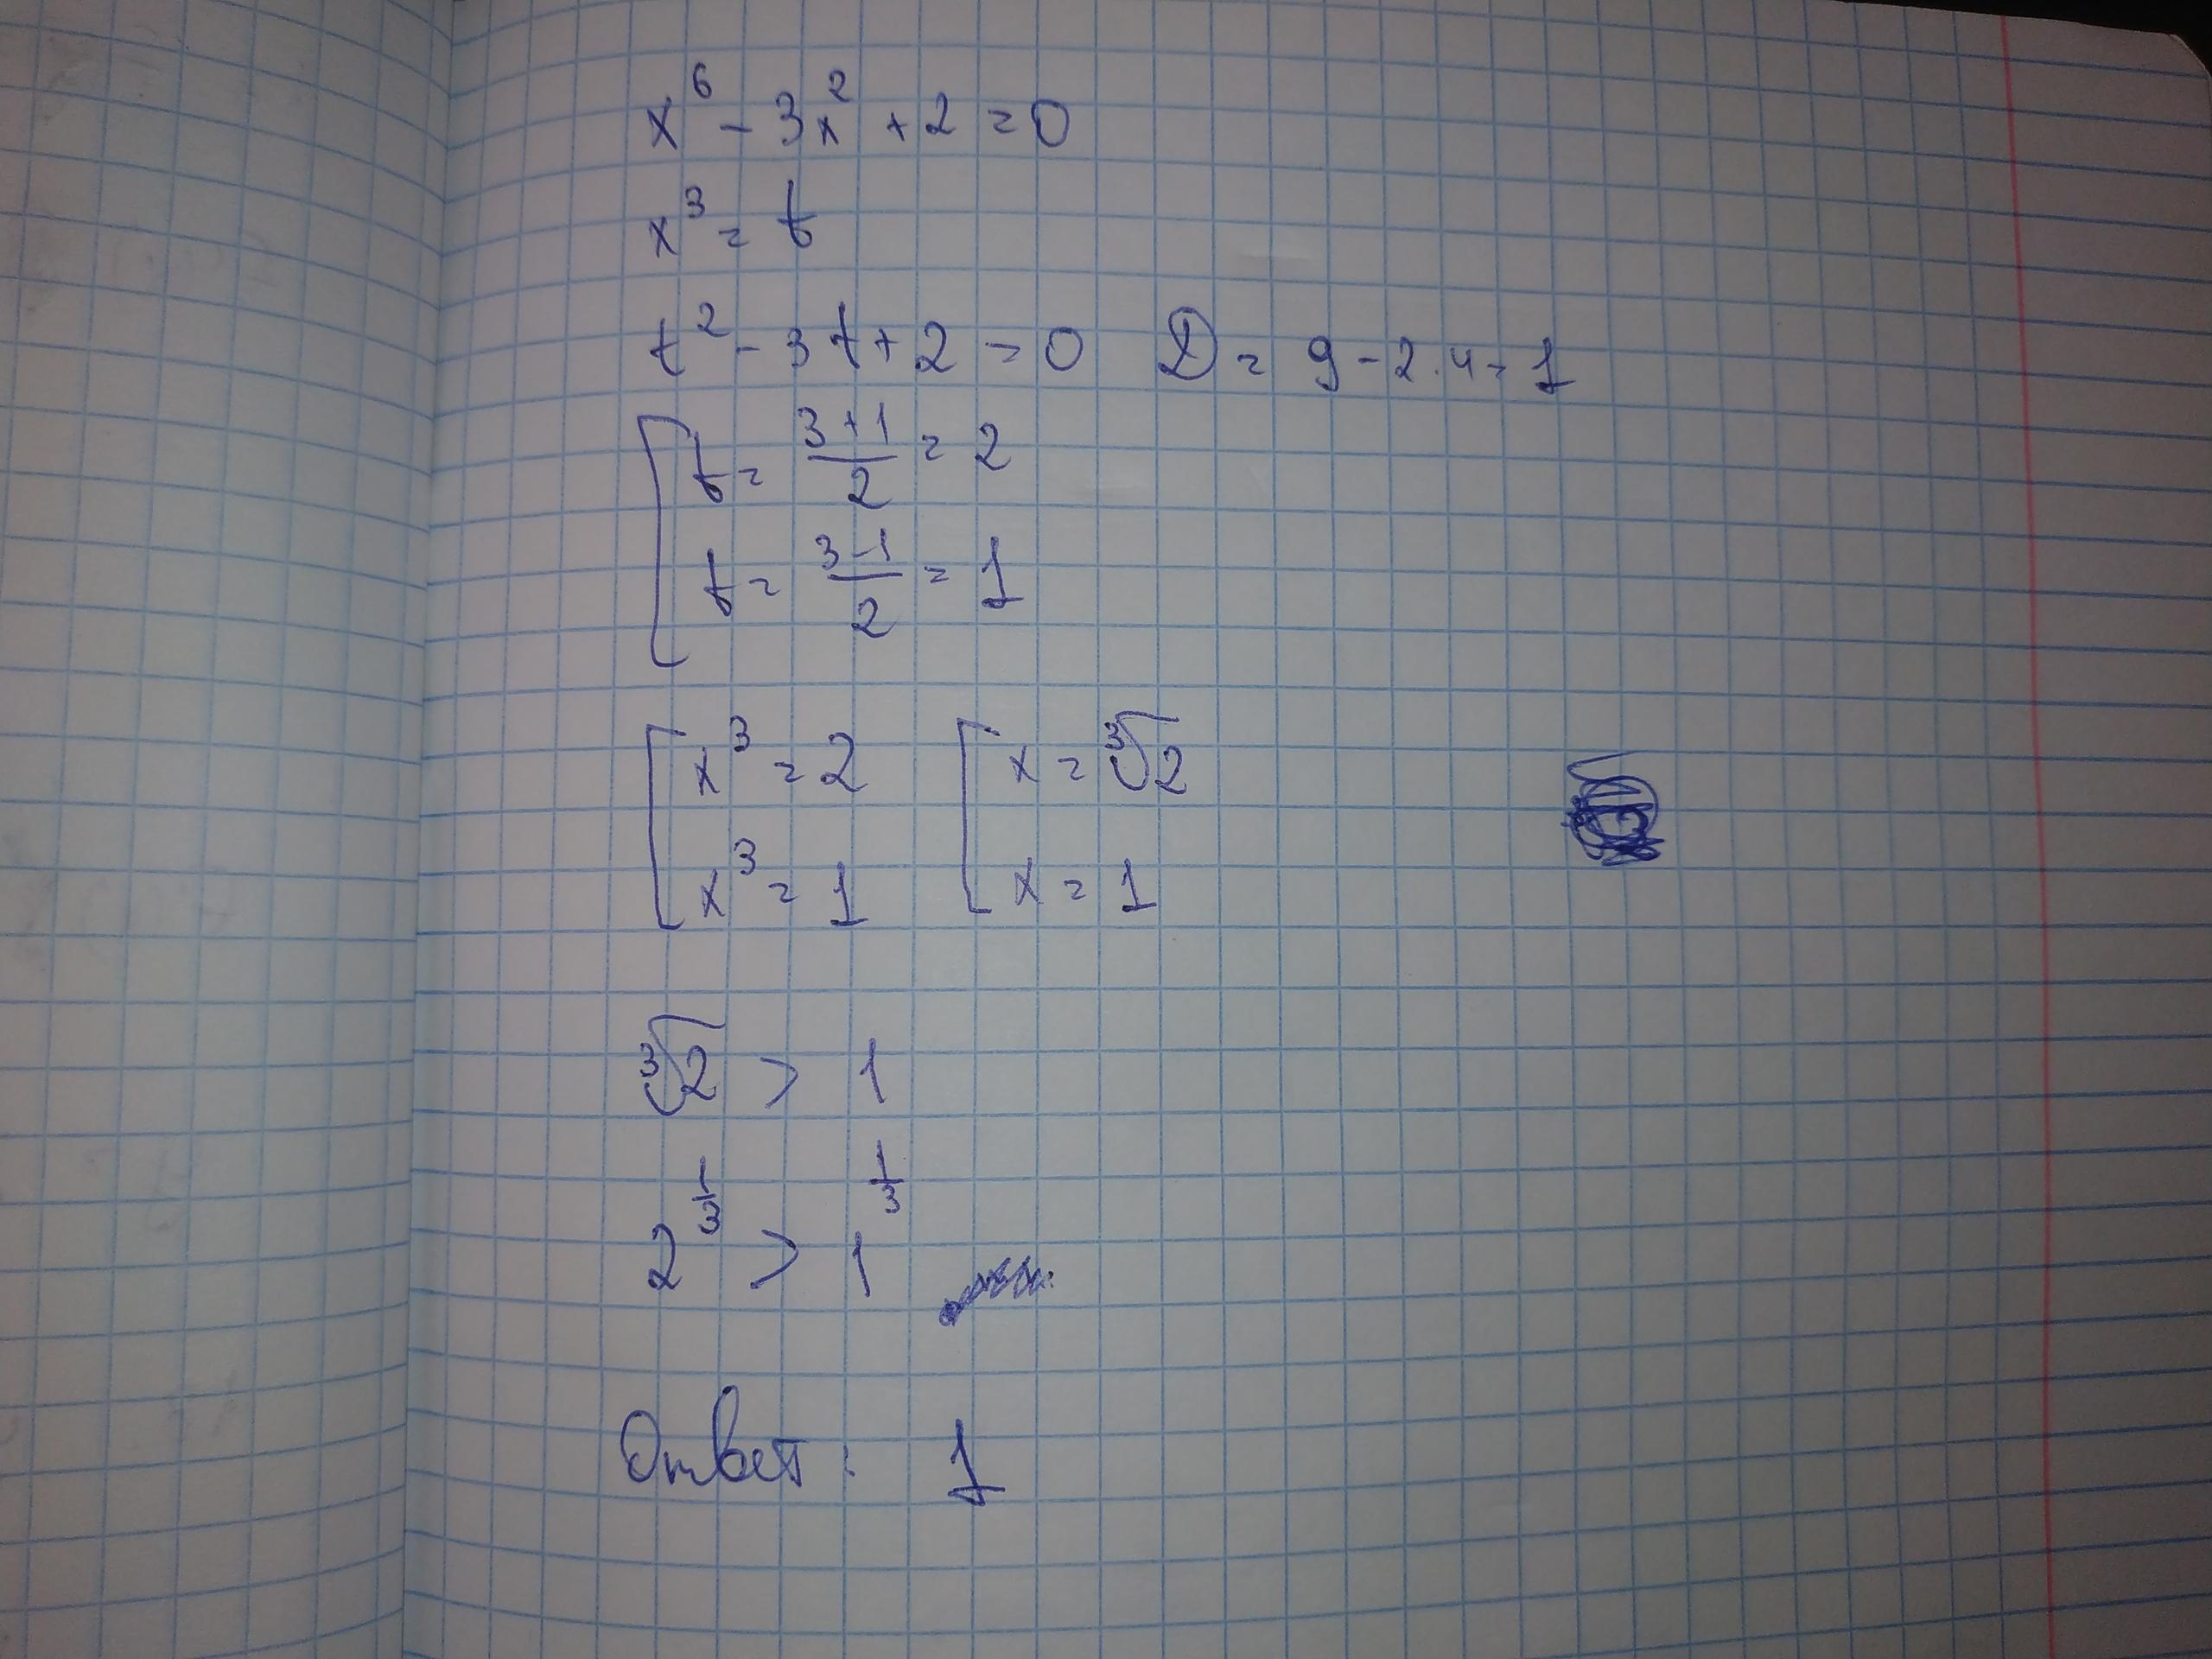 x⁶ - 3x² + 2 = 0
x³ = t
t² - 3t + 2 = 0 D = 9 - 2·4 = 1
t = (3+1)/2 = 2
t = (3-1)/2 = 1
x³ = 2 x = ∛2
x³ = 1 x = 1
∛2 > 1
2^(1/3) > 1^(1/3)
Ответ: 1